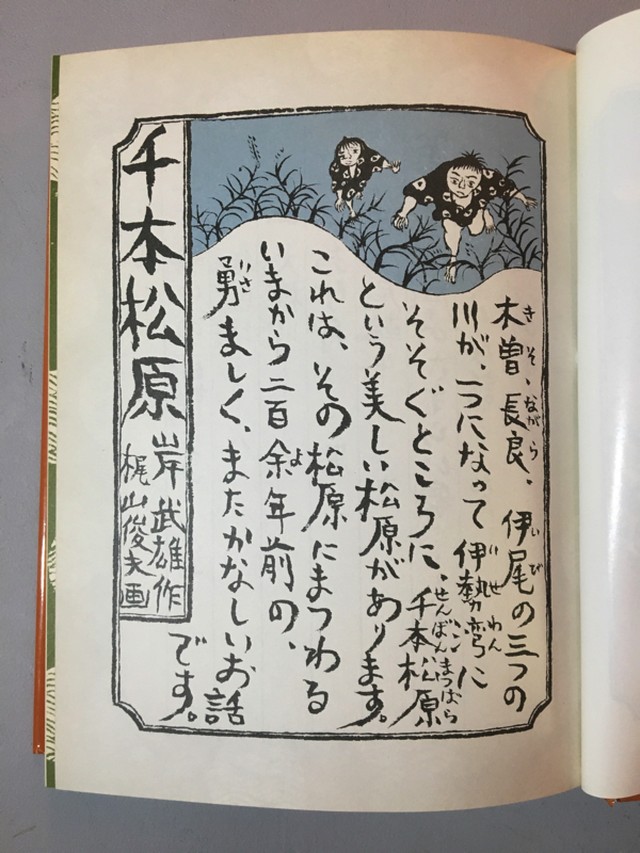 きそ ながら いび
木曽、長良、伊尾の三つの
いせわん
川が、一つになって伊勢湾に
せんぼんまつばら
そそぐところに、千本松原
という美しい松原があります。
これは、その松原にまつわる
よ
いまから二百余年前の、
いさ
勇ましく、またかなしいお話
です。
千本松原
岸武雄作
梶山俊夫画